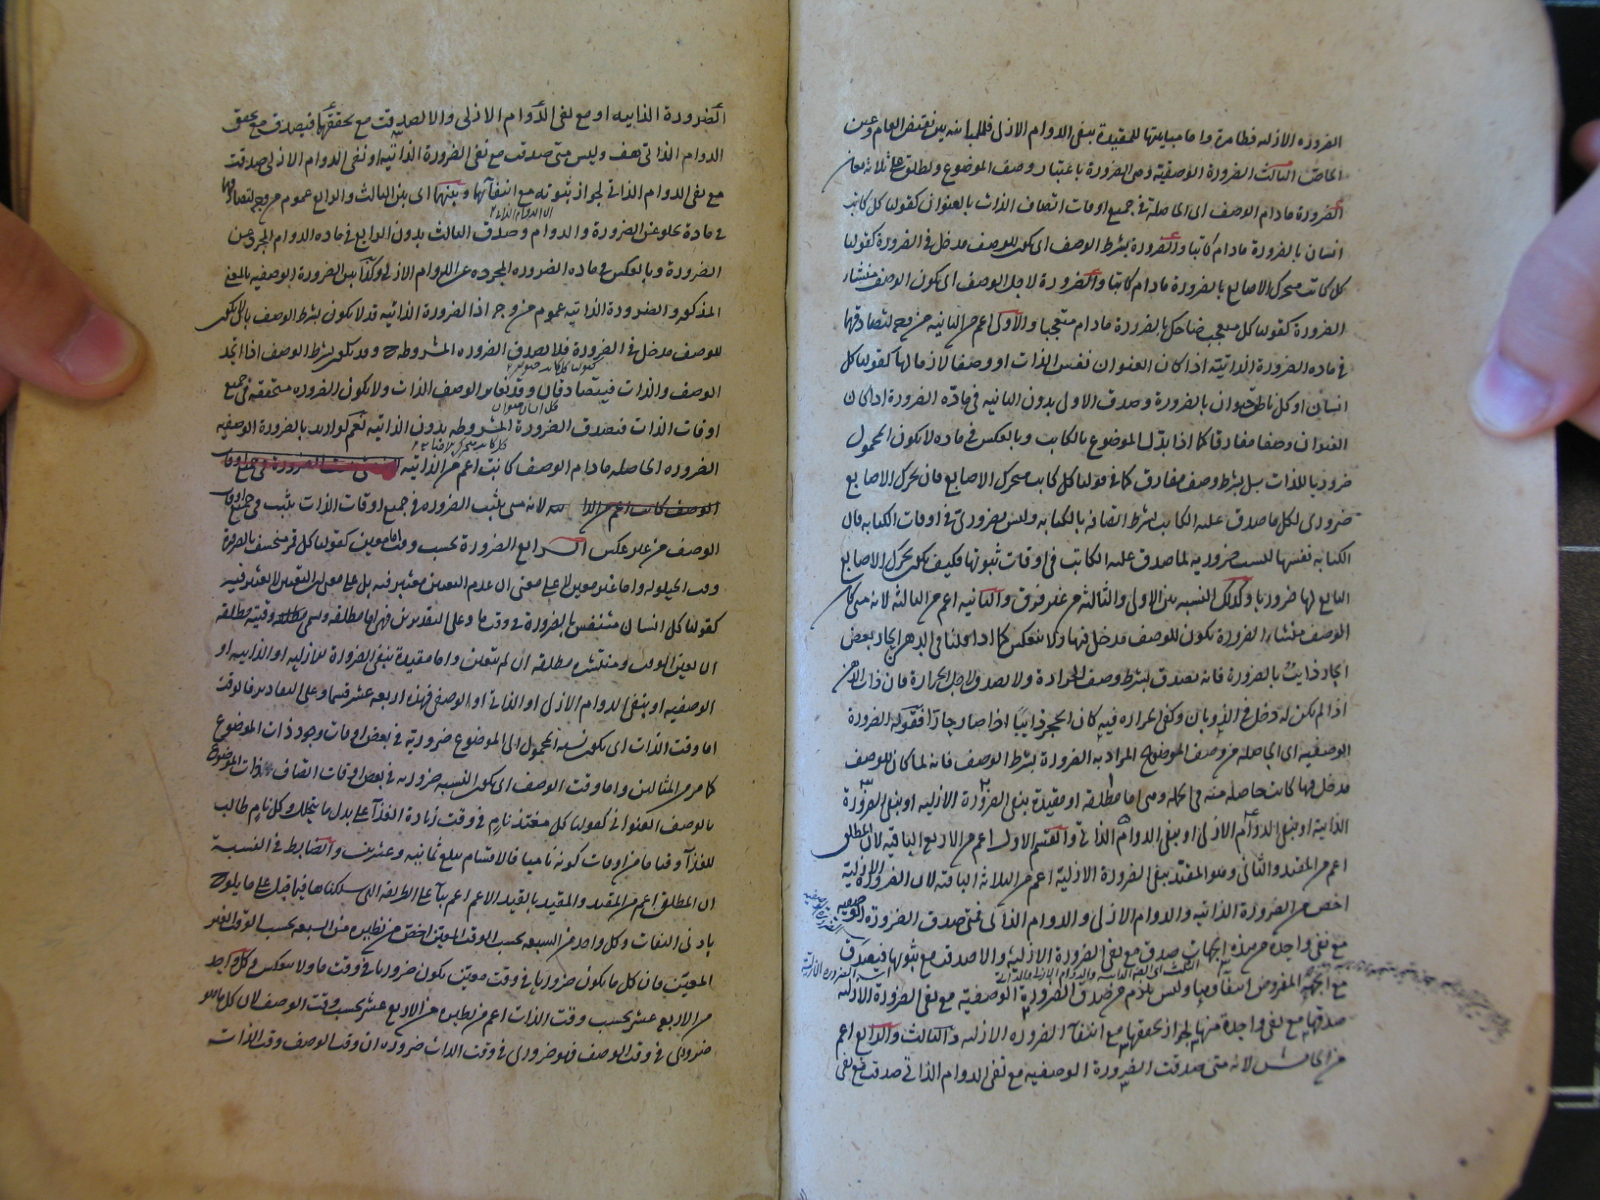 الضرورة الازلية فظاهرة واما مباينتها للمقيدة بنفي الدوام الازلي فللمباينة بين نقيض العام وعين
الخاص الثالث الضرورة الوصفية وهي الضرورة باعتبار وصف الموضوع وتطلق على ثلاثة معان
الضرورة مادام الوصف اى الحاصلة في جميع اوقات اتصاف الذات بالعنوان كقولنا كل كاتب
انسان بالضرورة مادام كاتبا والضرورة بشرط الوصف اى يكون للوصف مدخل في الضرورة كقولنا
كل كاتب متحرك الاصابع بالضرورة مادام كاتبا والضرورة لاجل الوصف اى يكون الوصف منشاء
الضرورة كقولنا كل متعجب ضاحك بالضرورة مادام متعجبا والاولى اعم من الثانية من وجه لتصادقهما
في مادة الضرورة الذاتية اذا كان العنوان نفس الذات او وصفا لازما لها كقولنا كل
انسان او كل ناطق حيوان بالضرورة وصدق الاولى بدون الثانية في مادة الضرورة اذا كان
العنوان وصفا مفارقا كما اذا بدل الموضوع بالكاتب وبالعكس في مادة لا يكون المحمول
ضروريا للذات بل بشرط وصف مفارق كما في قولنا كل كاتب متحرك الاصابع فان تحرك الاصابع
ضروري لكل ما صدق عليه الكاتب بشرط اتصافه بالكتابة وليس بضروري في اوقات الكتابة فان
الكتابة نفسها ليست ضرورية لما صدق عليه الكاتب في اوقات ثبوتها فكيف يكون تحرك الاصابع
التابع لها ضروريا وكذلك النسبة بين الاولى والثالثة من غير فرق والثانية اعم من الثالثة لانه متى كان
الوصف منشاء الضرورة يكون للوصف مدخل فيها ولا ينعكس كما اذا قلنا في الدهن الحار بعض
الحار ذايب بالضرورة فانه يصدق بشرط وصف الحرارة ولا يصدق لاجل الحرارة فان ذات الدهن
اذا لم يكن له دخل في الذوبان وكفى الحرارة فيه كان الحجر ذايبا اذا صار حارا فقوله الضرورة
الوصفية اى الحاصلة من وصف الموضوع المراد به الضرورة بشرط الوصف فانه لما كان للوصف
مدخل فيها كانت حاصلة منه في الجملة وهي اما مطلقة او مقيدة بنفي الضرورة الازلية او بنفي الضرورة
الذاتية او بنفي الدوام الازلي او بنفي الدوام الذاتي والقسم الاول اعم من الاربع الباقية لان المطلق
اعم من المقيد والثاني وهو المقيد بنفي الضرورة الازلية اعم من الثلاثة الباقية لان الضرورة الازلية
اخص من الضرورة الذاتية والدوام الازلي والدوام الذاتي فمتى صدق الضرورة الوصفية
مع نفي واحدة من هذه الجهات صدق مع نفي الضرورة الازلية والا صدقت مع ثبوتها فيصدق
مع الجهة المفروض انتفاؤها وليس يلزم من صدق الضرورة الوصفية مع نفي الضرورة الازلية
صدقها مع نفي واحدة منها لجواز تحققها مع انتفاء الضرورة الازلية والثالث والرابع اعم
من الخامس لانه متى صدقت الضرورة الوصفية مع نفي الدوام الذاتي صدقت مع نفي
الضرورة الذاتية او مع نفي الدوام الازلي والا لصدقت مع تحققها فيصدق مع تحقق
الدوام الذاتي هف وليس متى صدقت مع نفي الضرورة الذاتية او نفي الدوام الازلي صدقت
مع نفي الدوام الذاتي لجواز ثبوته مع انتفائها وبينها اى بين الثالث والرابع عموم من وجه لتصادقهما
في مادة تخلو عن الضرورة والدوام وصدق الثالث بدون الرابع في مادة الدوام المجرد عن
الضرورة وبالعكس في مادة الضرورة المجردة عن الدوام الازلي وكذا بين الضرورة الوصفية بالمعنى
المذكور والضرورة الذاتية عموم من وجه اذ الضرورة الذاتية قد لا يكون بشرط الوصف بان لا يكون
للوصف مدخل في الضرورة فلا يصدق الضرورة المشروطة ح وقد يكون بشرط الوصف اذا اتحد
الوصف والذات فيتصادقان وقد يغاير الوصف الذات ولا يكون الضرورة متحققة في جميع
اوقات الذات فتصدق الضرورة المشروطة بدون الذاتية نعم لو اريد بالضرورة الوصفية
الضرورة الحاصلة مادام الوصف كانت اعم من الذاتية
لانه متى يثبت الضرورة في جميع اوقات الذات يثبت في جميع اوقات
الوصف من غير عكس الرابع الضرورة بحسب وقت اما معين كقولنا كل قمر منخسف بالضرورة
وقت الحيلولة واما غير معين لا على معنى ان عدم التعين معتبر فيه بل على معنى ان التعين لا يعتبر فيه
كقولنا كل انسان متنفس بالضرورة في وقت ما وعلى التقديرين فهي اما مطلقة وتسمى وقتية مطلقة
ان تعين الوقت ومنتشرة مطلقة ان لم يتعين واما مقيدة بنفي الضرورة الازلية او الذاتية او
الوصفية او بنفي الدوام الازلي او الذاتي او الوصفي فهذه اربعة عشر قسما وعلى التقادير فالوقت
اما وقت الذات اى يكون نسبة المحمول الى الموضوع ضرورية في بعض اوقات وجود ذات الموضوع
كما مر من المثالين واما وقت الوصف اى يكون النسبة ضرورية في بعض اوقات اتصاف ذات الموضوع
بالوصف العنواني كقولنا كل مغتذ نام في وقت زيادة الغذاء على بدل ما يتحلل وكل نام طالب
للغذاء وقتا ما من اوقات كونه ناميا فالاقسام يبلغ ثمانية وعشرين والضابط في النسبة
ان المطلق اعم من المقيد والمقيد بالقيد الاعم اعم بناء على الطريقة التي سلكناها فيما قبل على ما يلوح
بادنى التفات وكل واحد من السبعة بحسب الوقت المعين اخص من نظيره من السبعة بحسب الوقت الغير
المعين فان كل ما يكون ضروريا في وقت معين يكون ضروريا في وقت ما ولا ينعكس وكل واحد
من الاربع عشر بحسب وقت الذات اعم من نظيره من الاربع عشر بحسب وقت الوصف لان كل ما هو
ضروري في وقت الوصف فهو ضروري في وقت الذات ضرورة ان وقت الوصف وقت الذات